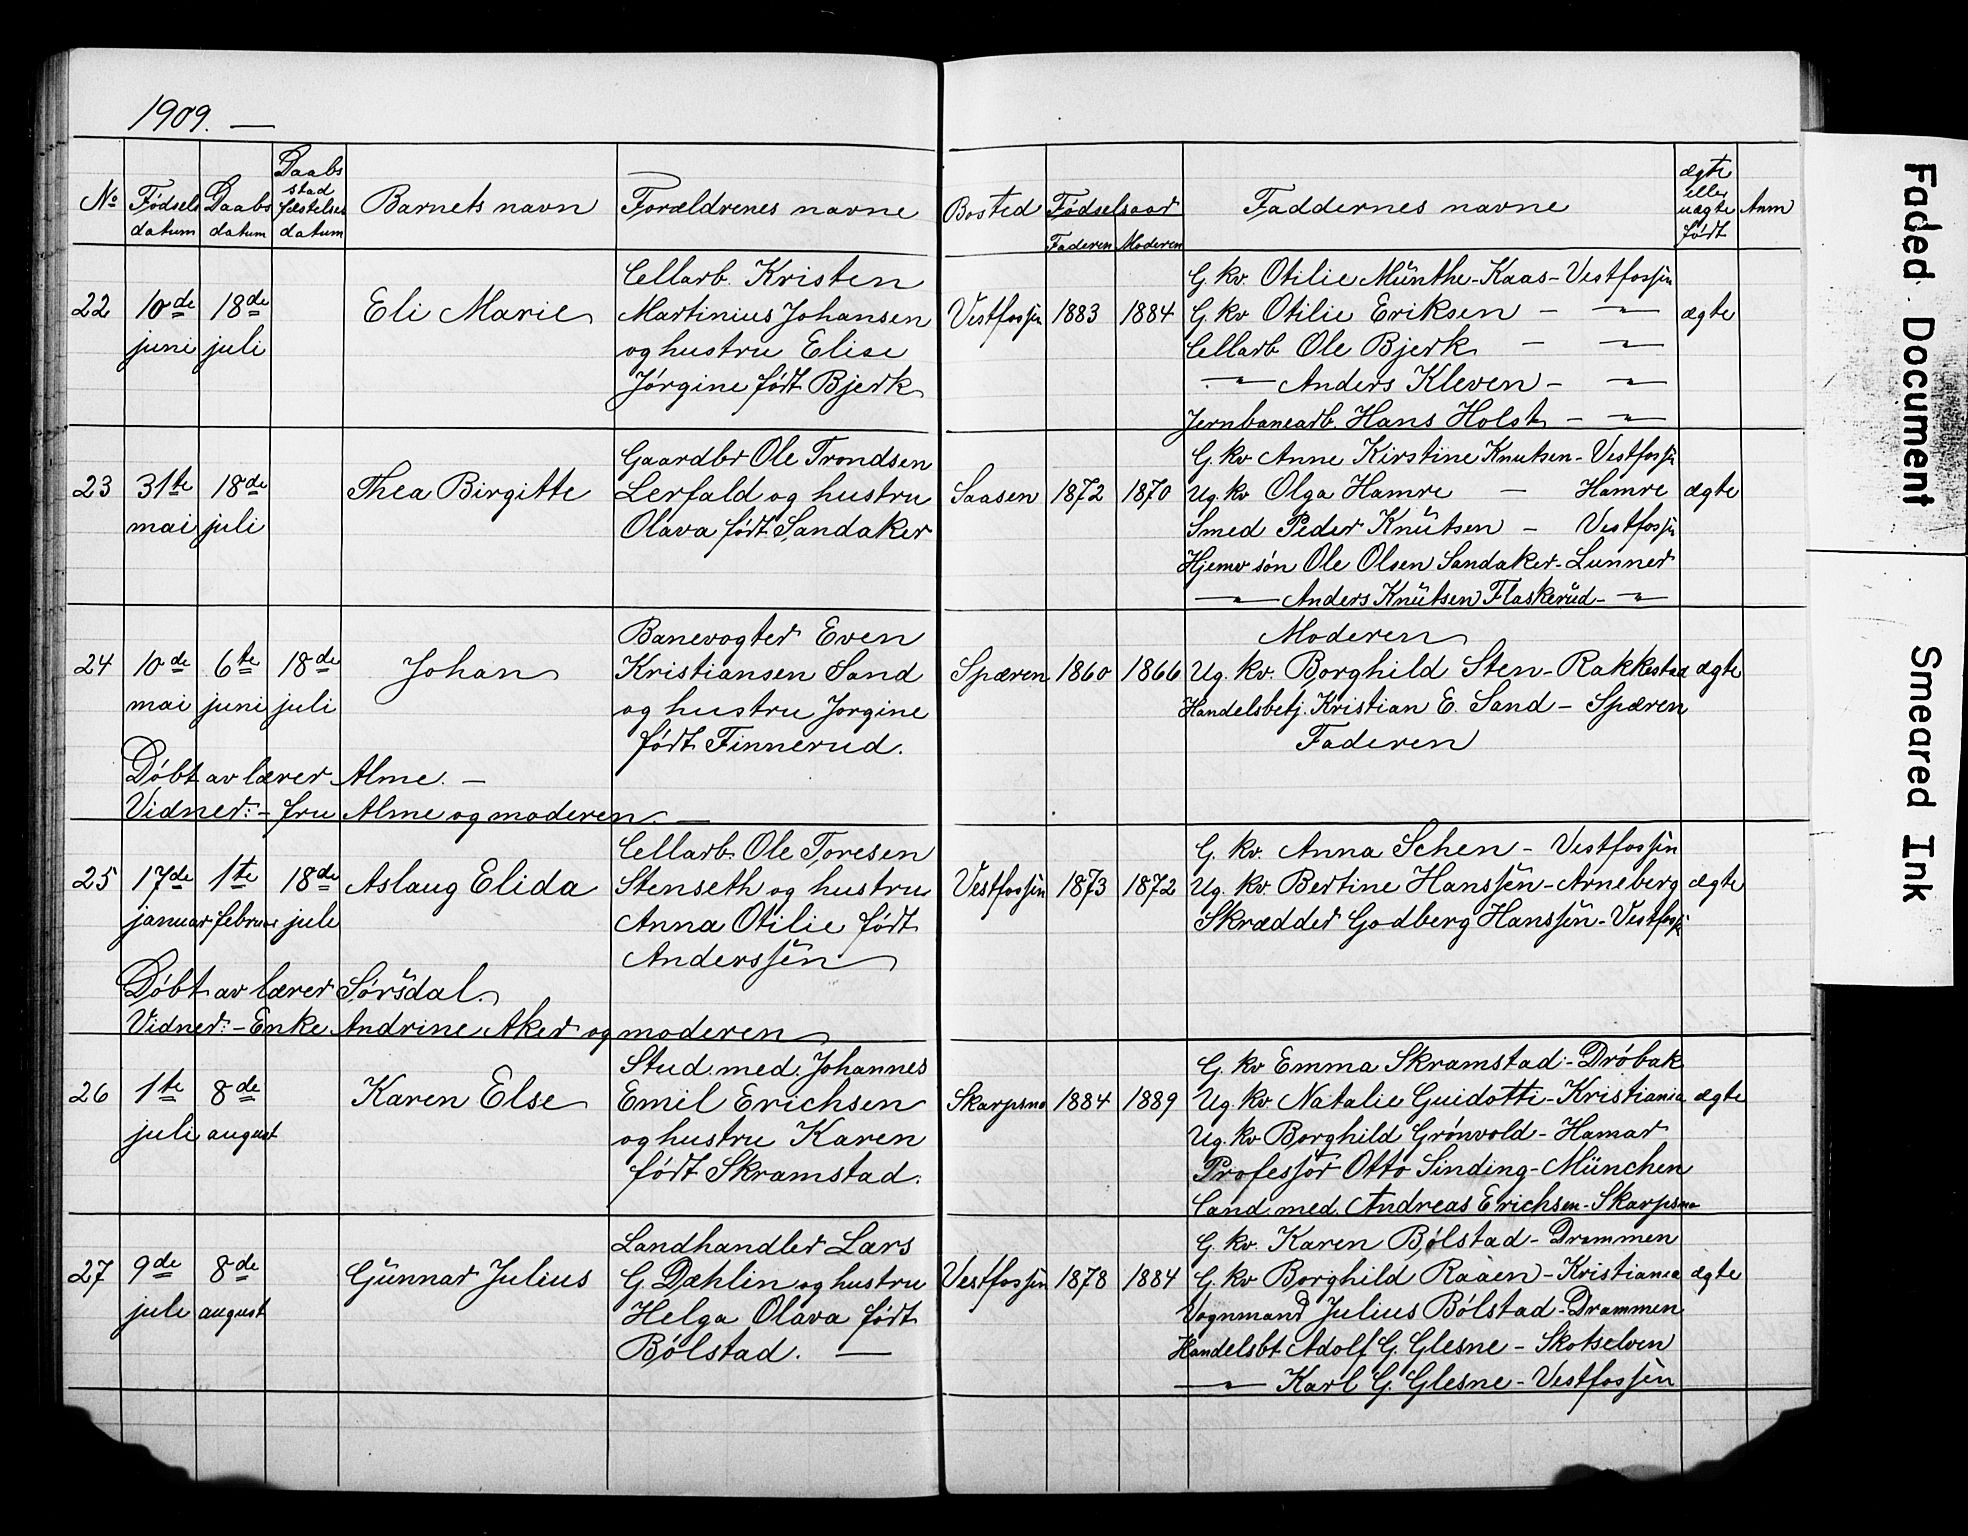 1909. —
No
Fødsels datum
Daabs datum
Daabs stad fæstelses datum
Barnets navn
Forældrenes navne
Bosted
Fødselsaar
Faderen
Moderen
Faddernes navne
ægte eller uægte født
Anm
22
10de juni
18de juli
Eli Marie
Cellarb. Kristen
Martinius Johansen
og hustru Elise
Jørgine født Bjerk
Vestfossen
1883
1884
G. kv. Otilie Münthe-Kaas - Vestfossen
G. kv Otilie Eriksen - —"—
Cellarb Ole Bjerk - —"—
—"— Anders Kleven - —"—
Jernbanearb. Hans Holst - —"—
ægte
23
31te mai
18de juli
Thea Birgitte
Gaardbr Ole Trondsen
Lerfald og hustru
Olava født Sandaker
Saasen
1872
1870
G. kv Anne Kirstine Knutsen - Vestfossen
Ug. kv Olga Hamre — Hamre
Smed Peder Knütsen - Vestfossen
Hjemv søn Ole Olsen Sandaker - Lunner
—"— Anders Knütsen Flaskerüd - —"—
ægte
24
10de mai
6te juni
18de juli
Johan
Banevogter Even
Kristiansen Sand
og hustru Jorgine
født Finnerud.
Døbt av lærer Alme. —
Vidner: - fru Alme og moderen. —
Spæren
1860
1866
Moderen
Ug. kv. Borghild Sten - Rakkestad
Handelsbetj. Kristian E. Sand - Spæren
Faderen
ægte
25
17de januar
1te februar
18de juli
Aslaug Elida
Cellarb. Ole Toresen
Stenseth og hustru
Anna Otilie født
Anderssen
Døbt av lærer Sørsdal.
Vidner: - Enke Andrine Aker og moderen
Vestfossen
1873
1872
G. kv. Anna Schen - Vestfossen
Ug. kv. Bertine Hanssen - Arneberg
Skrædder Godberg Hanssen - Vestfossen
ægte
26
1te juli
8de august
Karen Else
Stud. med. Johannes
Emil Erichsen
og hustru Karen
født Skramstad.
Skarpsno
1884
1889
G. kv Emma Skramstad - Drøbak
Ug. kv Natalie Guidotti - Kristiania
Ug. kv Borghild Grønvold - Hamar
Professor Otto Sinding - München
Cand. med. Andreas Erichsen - Skarpsno
ægte
27
9de juli
8de august
Günnar Julius
Landhandler Lars
G. Dæhlin og hustru
Helga Olava født
Bølstad. —
Vestfossen
1878
1884
G. kv. Karen Bølstad - Drammen
G. kv Borghild Raaen - Kristiania
Vognmand Julius Bølstad - Drammen
Handelsbt Adolf G. Glesne - Skotselven
—"— Karl G. Glesne - Vestfossen
ægte
Faded Document
Smeared Ink